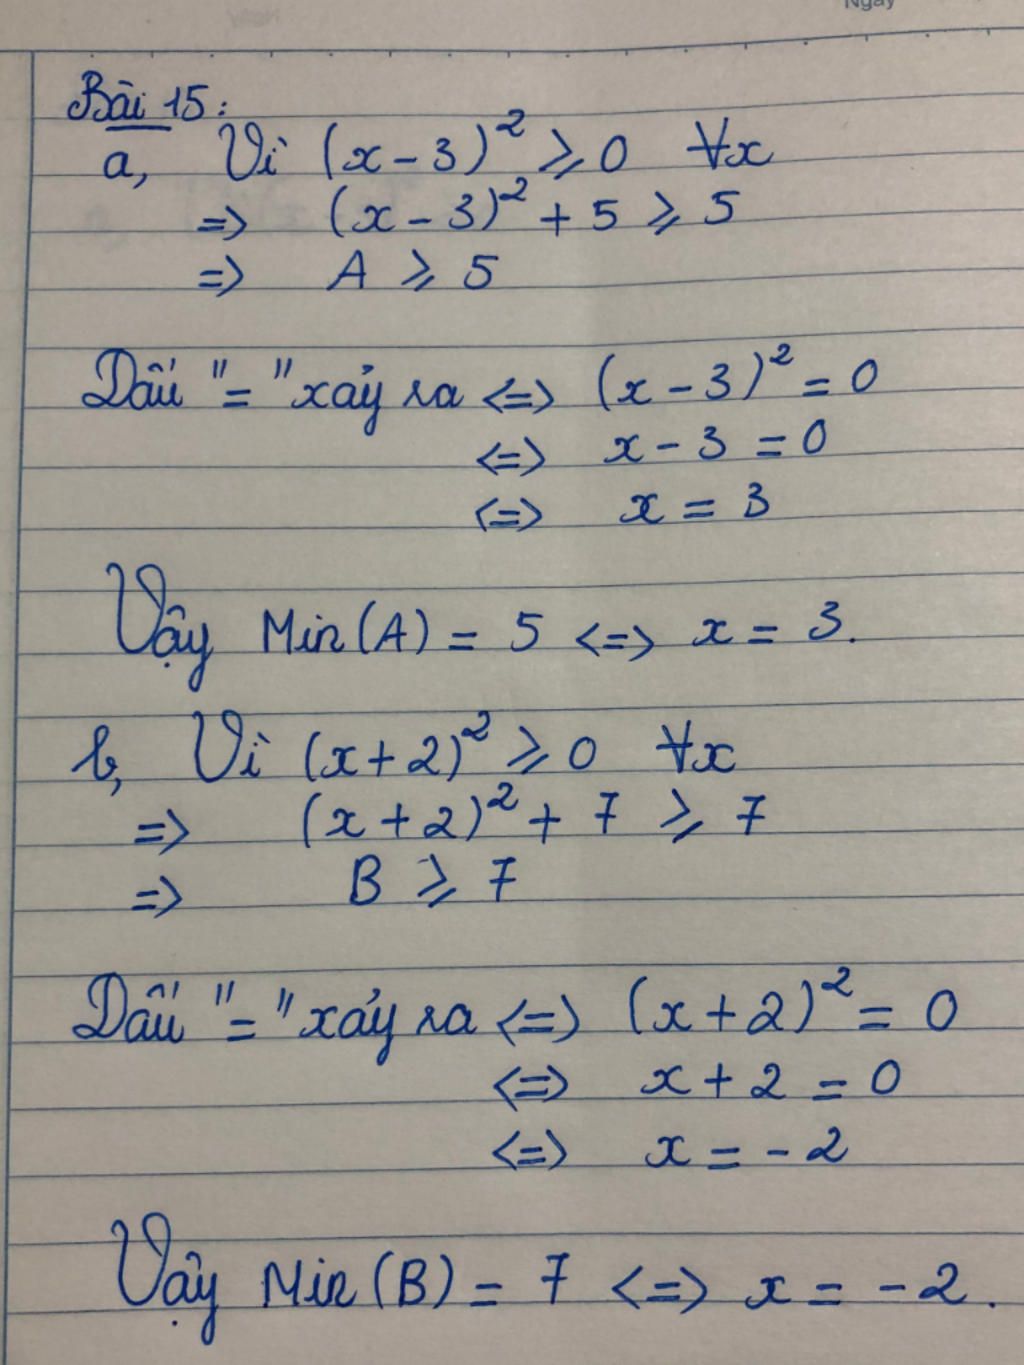 Ngày
Bài 15:
a, Vì (x - 3)² ⩾ 0 ∀x
=> (x - 3)² + 5 ⩾ 5
=> A ⩾ 5
Dấu "=" xảy ra <=> (x - 3)² = 0
<=> x - 3 = 0
<=> x = 3
Vậy Min(A) = 5 <=> x = 3.
b, Vì (x + 2)² ⩾ 0 ∀x
=> (x + 2)² + 7 ⩾ 7
=> B ⩾ 7
Dấu "=" xảy ra <=> (x + 2)² = 0
<=> x + 2 = 0
<=> x = -2
Vậy Min(B) = 7 <=> x = -2.